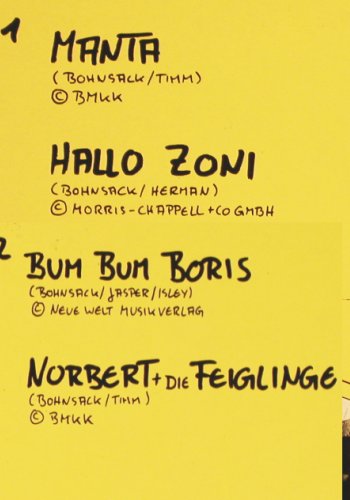 1 MANTA
(BOHNSACK/TIMM)
© BMKK
HALLO ZONI
(BOHNSACK/HERMAN)
© MORRIS-CHAPPELL+CO GMBH
2 BUM BUM BORIS
(BOHNSACK/JASPER/ISLEY)
© NEUE WELT MUSIKVERLAG
NORBERT + DIE FEIGLINGE
(BOHNSACK/TIMM)
© BMKK